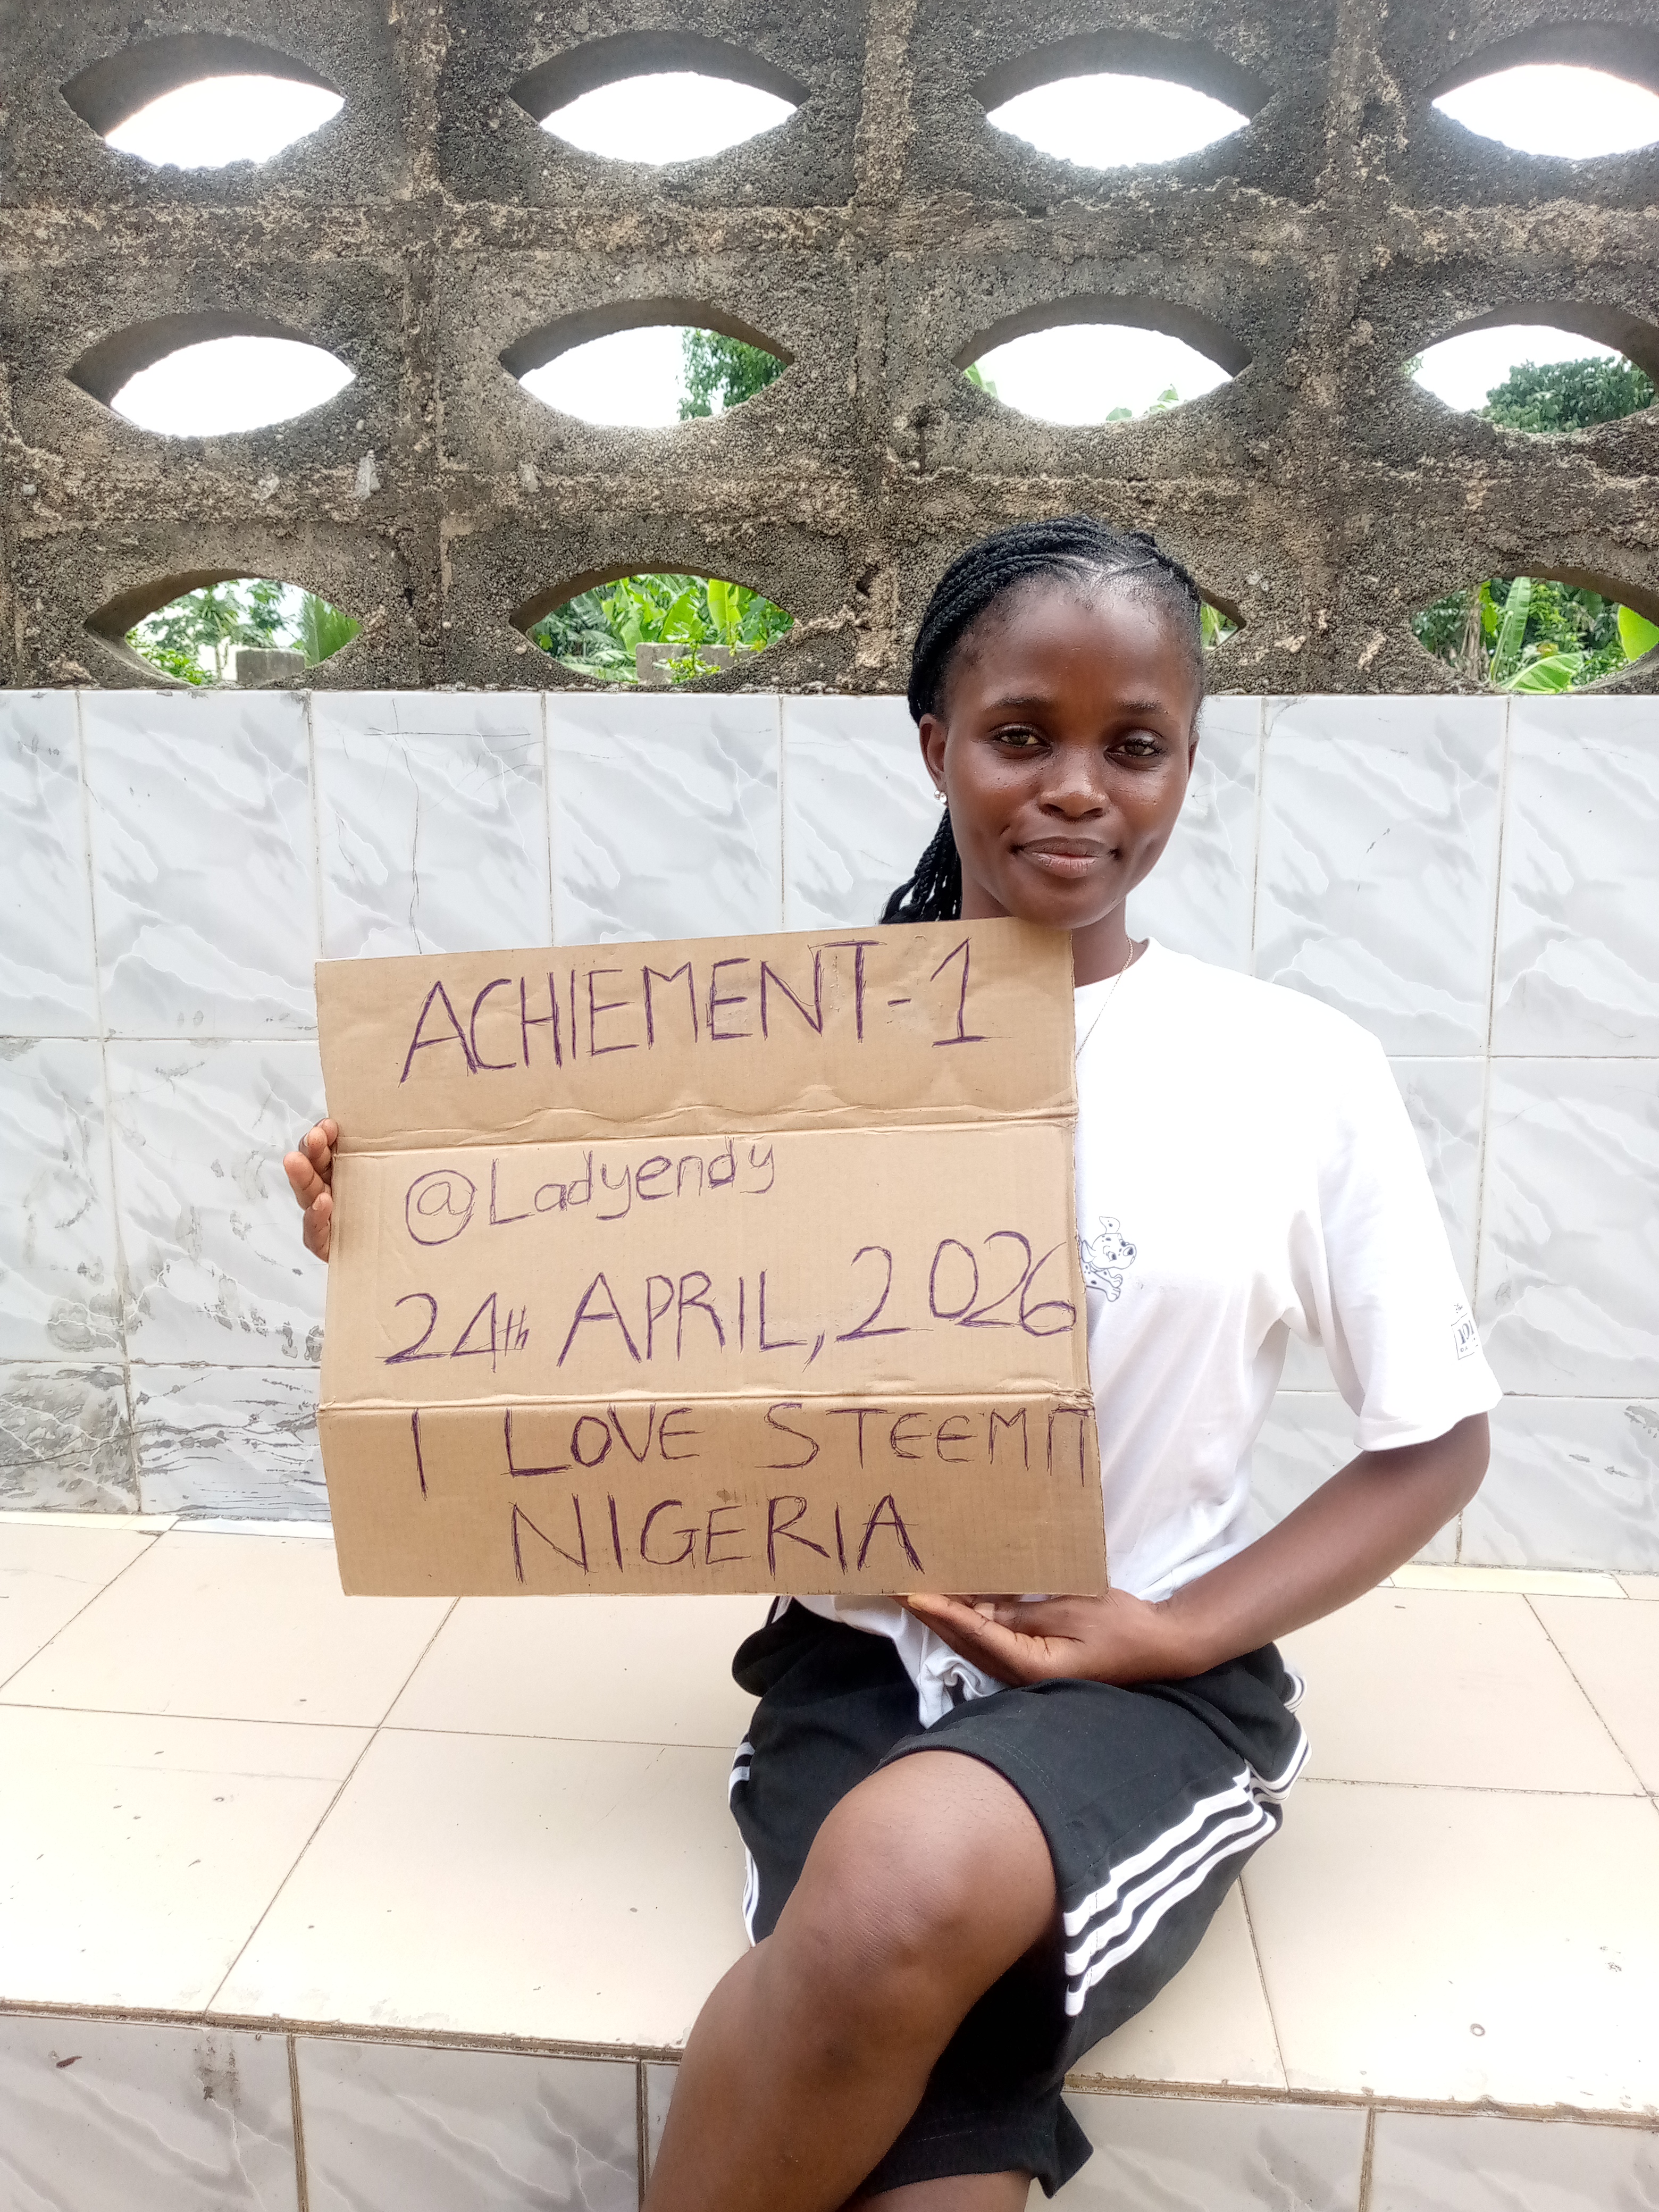 ACHIEMENT-1
@Ladyendy
24th APRIL, 2026
I LOVE STEEMIT
NIGERIA